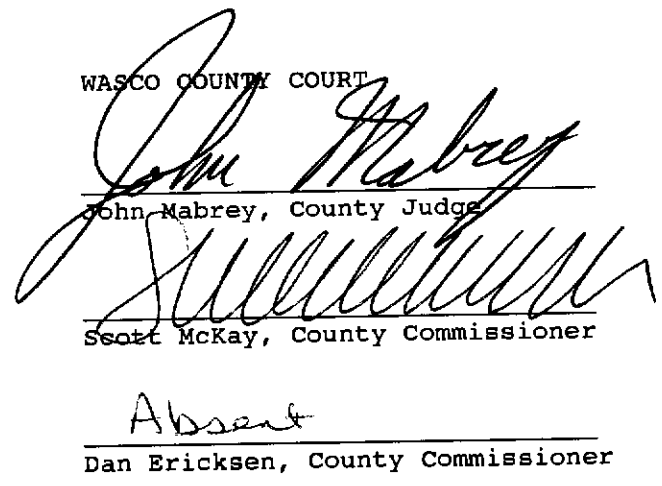 WASCO COUNTY COURT
John Mabrey
John Mabrey, County Judge
Scott McKay, County Commissioner
Absent
Dan Ericksen, County Commissioner